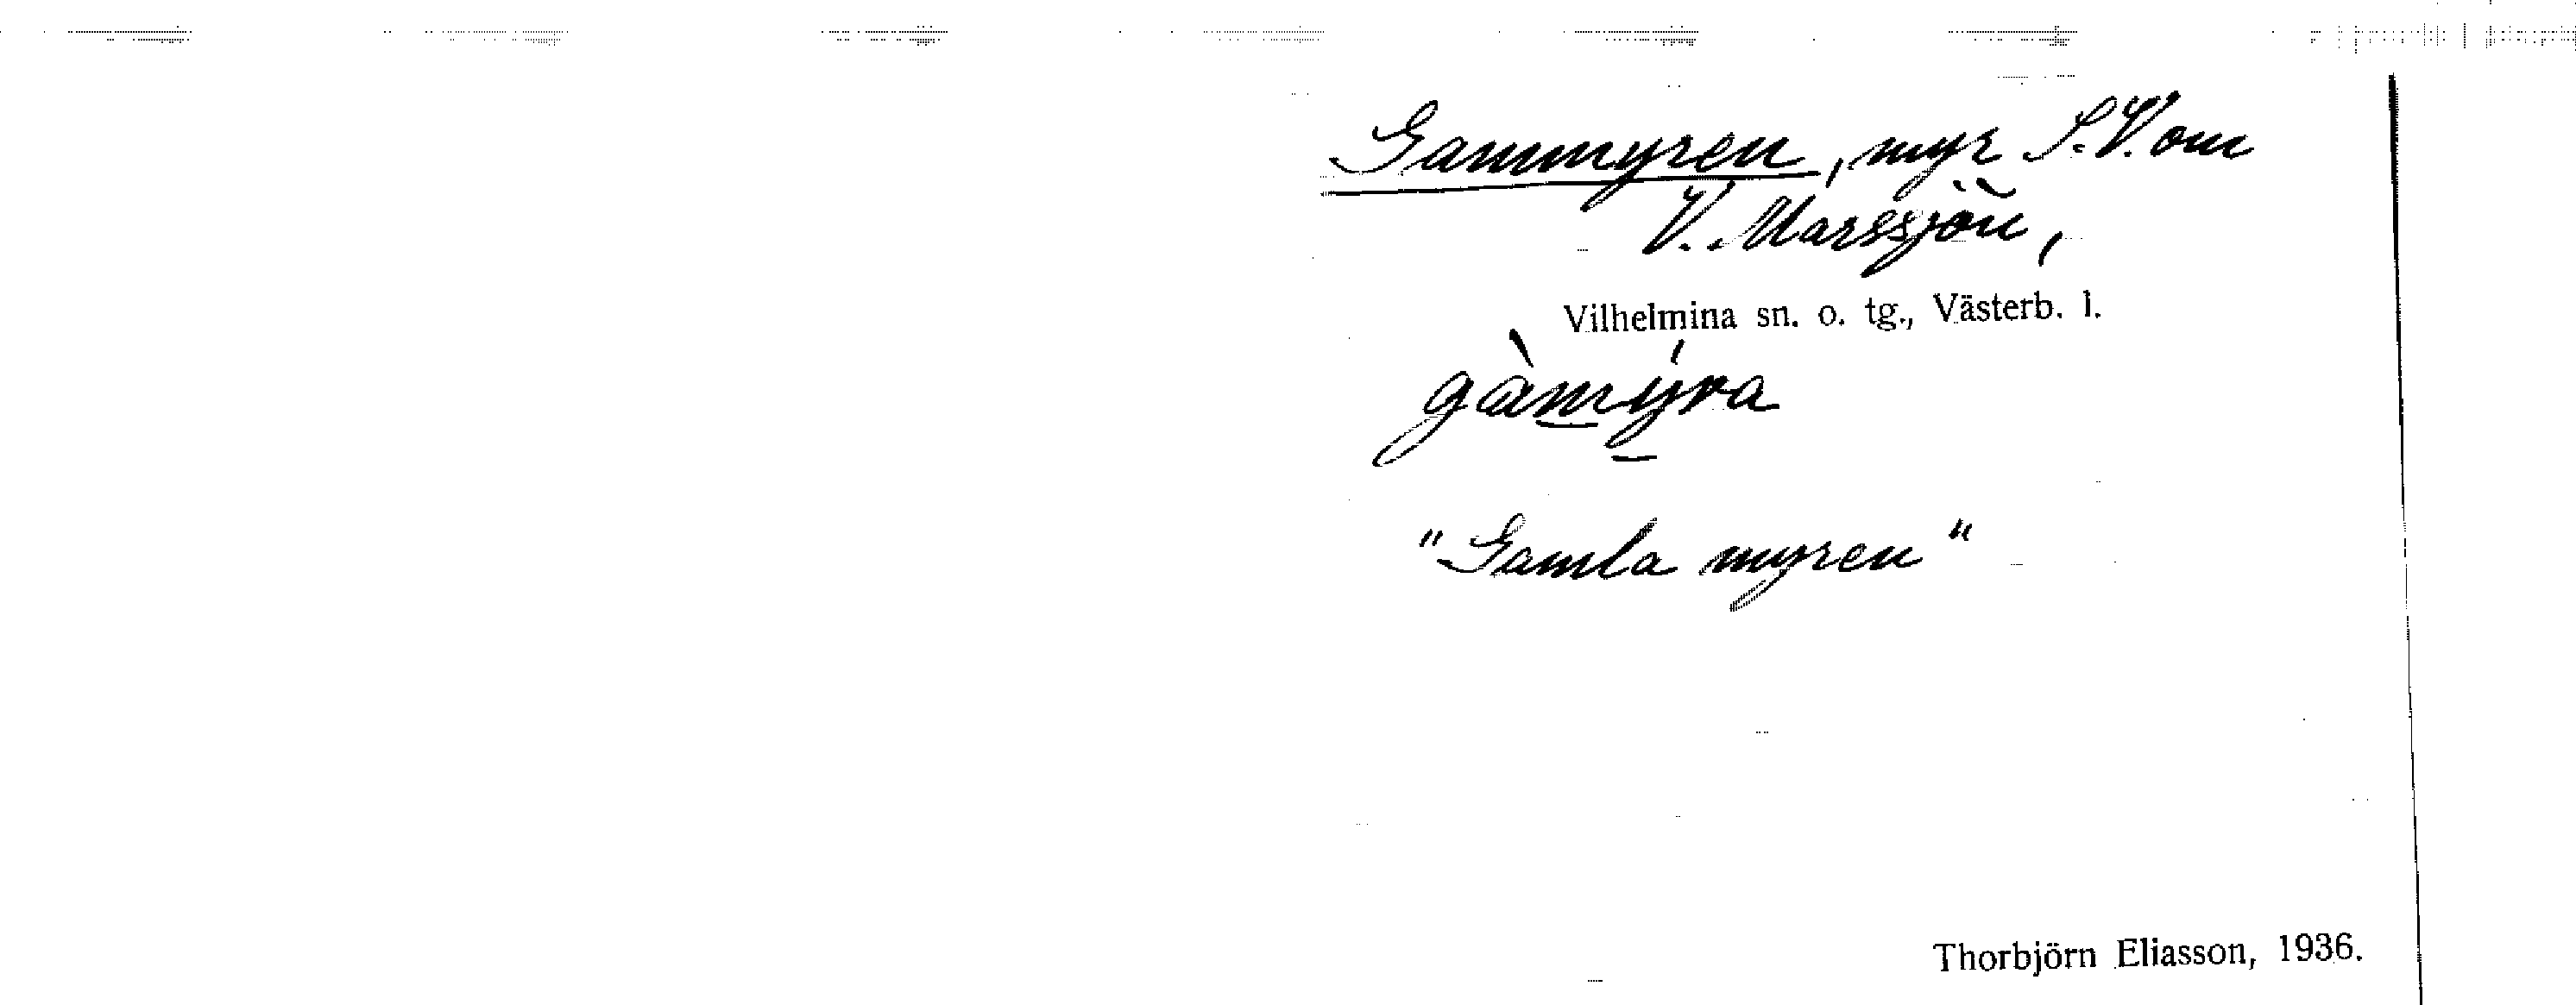 Gammyren, myr S.V. om
V. Marssjön,
Vilhelmina sn. o. tg., Västerb. l.
gàmýra
"Gamla myren"
Thorbjörn Eliasson, 1936.